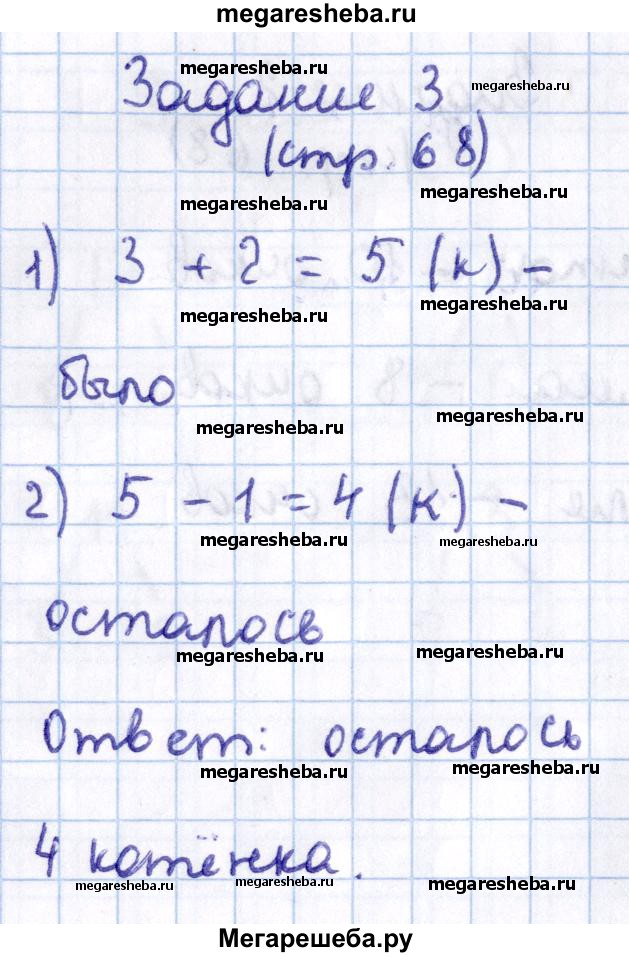 megaresheba.ru
megaresheba.ru
Задание 3
megaresheba.ru
(стр. 68)
megaresheba.ru
megaresheba.ru
1) 3 + 2 = 5 (к) –
megaresheba.ru
megaresheba.ru
было
megaresheba.ru
megaresheba.ru
2) 5 – 1 = 4 (к) –
megaresheba.ru
megaresheba.ru
осталось
megaresheba.ru
megaresheba.ru
Ответ: осталось
megaresheba.ru
megaresheba.ru
4 котёнка.
megaresheba.ru
megaresheba.ru
megaresheba.ru
Мегарешеба.ру